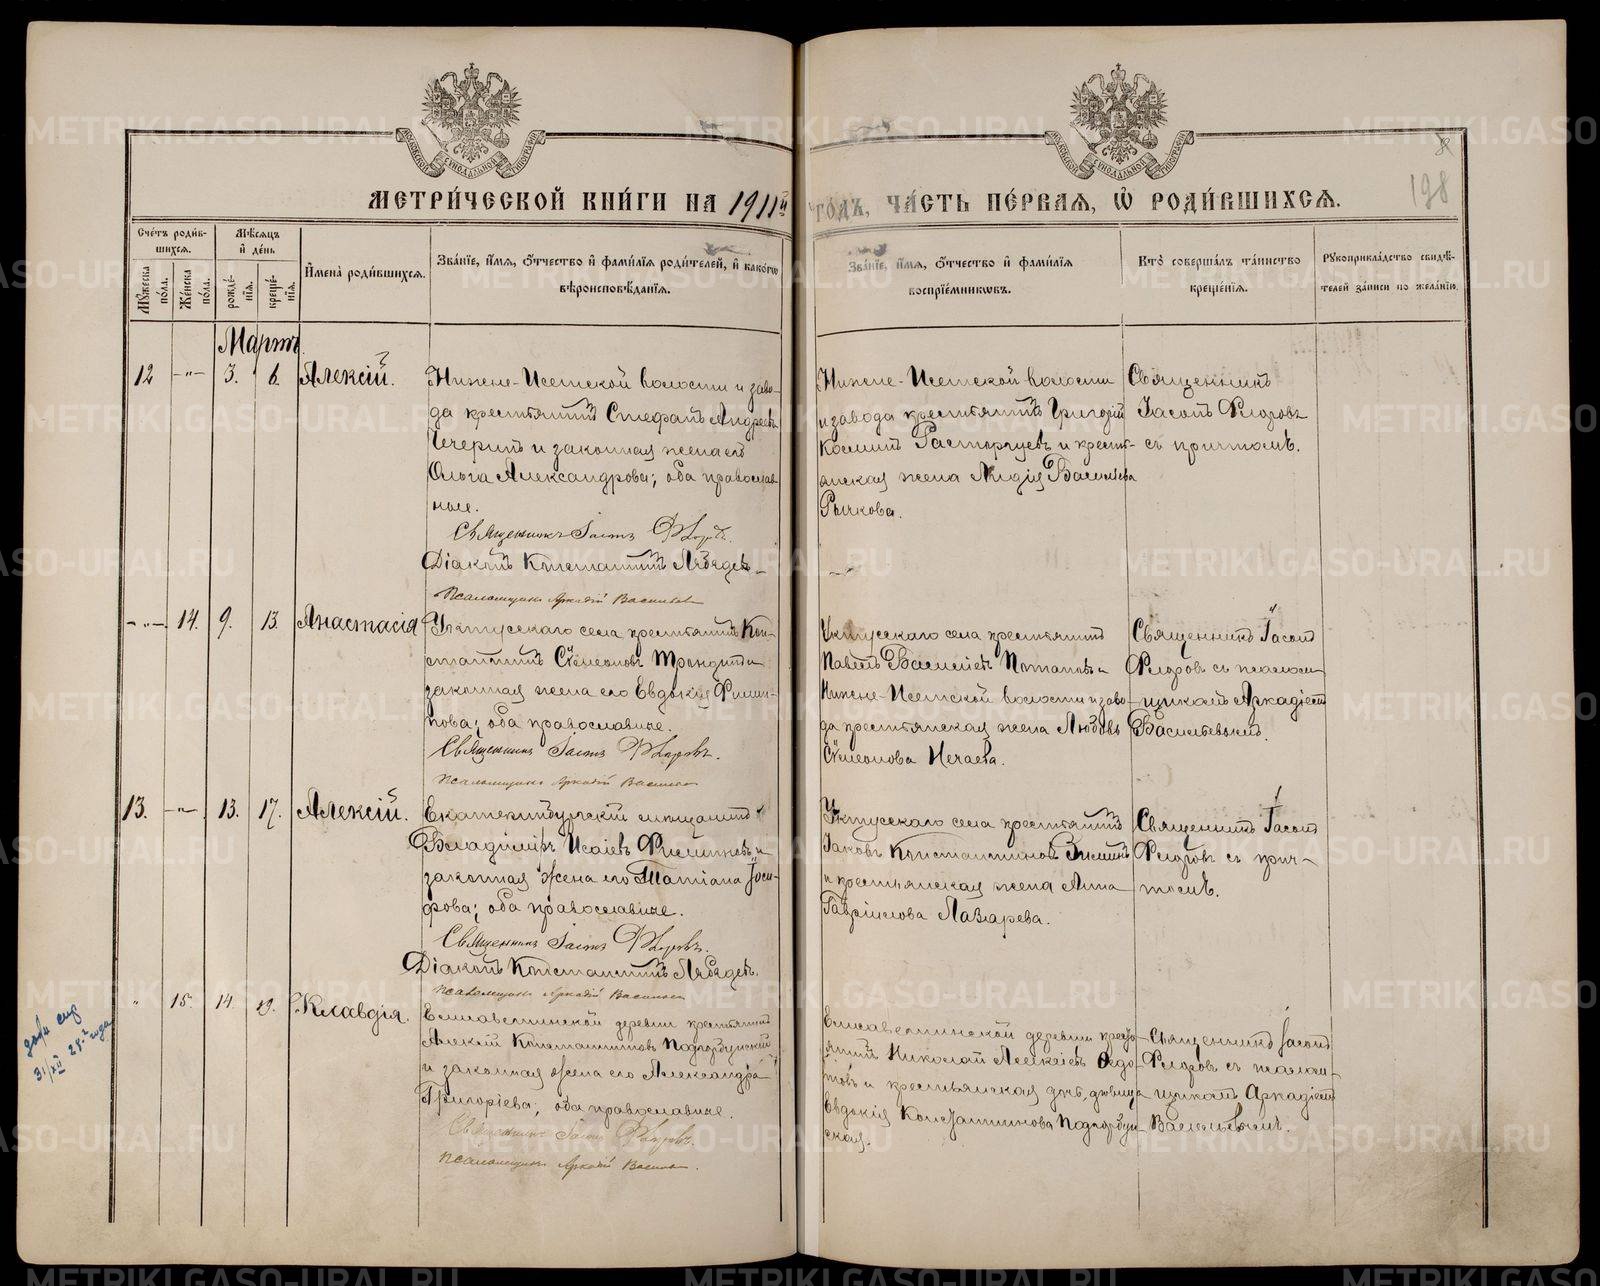 МОСКОВСКОЙ СѴНОДАЛЬНОЙ ТИПОГРАФІИ
МОСКОВСКОЙ СѴНОДАЛЬНОЙ ТИПОГРАФІИ
МЕТРИ́ЧЕСКОЙ КНИ́ГИ НА 1911й
ГОДЪ, ЧА́СТЬ ПЕ́РВАЯ, Ѡ҆ РОДИ́ВШИХСЯ.
198
Сче́тъ роди́в-
шихся.
Мѣ́сяцъ
и҆ де́нь
Му́жеска по́ла.
Же́нска по́ла.
рожде́-
нїя.
креще́-
нїя.
И҆мена̀ роди́вшихся.
Зва́нїе, и҆́мя, ѻ҆́тчество и҆ фами́лїя роди́телей, и҆ како́гѡ
вѣроисповѣ́данїя.
Зва́нїе, и҆́мя, ѻ҆́тчество и҆ фами́лїя
воспрїе́мникѡвъ.
Кто̀ соверша́лъ та́инство
креще́нїя.
Рукоприкла́дство свидѣ́-
телей за́писи по жела́нїю.
Мартъ.
12 —„— 3. 6. Алексій.
Нижне-Исетской волости и заво-
да крестьянинъ Стефанъ Андреевъ
Чечеринъ и законная жена его
Ольга Александрова; оба православ-
ные.
Священникъ Іасонъ Флоровъ.
Діаконъ Константинъ
Псаломщикъ Аркадій Васильевъ
Нижне-Исетской волости
и завода крестьянинъ Григорій
Косминъ Расторгуевъ и кресть-
янская жена Лидія Васильева
Рычкова.
Священникъ
Іасонъ Флоровъ
съ причтомъ.
—„— 14. 9. 13. Анастасія
Уктусскаго села крестьянинъ Кон-
стантинъ Симеоновъ и
законная жена его Евдокія Филип-
пова; оба православные.
Священникъ Іасонъ Флоровъ.
Псаломщикъ Аркадій Васильевъ
Уктусскаго села крестьянинъ
Павелъ Василіевъ Потаповъ и
Нижне-Исетской волости и заво-
да крестьянская жена Любовь
Симеонова Нечаева.
Священникъ Іасонъ
Флоровъ съ псалом-
щикомъ Аркадіемъ
Васильевымъ.
13. —„— 13. 17. Алексій.
Екатеринбургскій мещанинъ
Владиміръ Исаіевъ Филипповъ и
законная жена его Татіана Іоси-
фова; оба православные.
Священникъ Іасонъ Флоровъ.
Діаконъ Константинъ
Псаломщикъ Аркадій Васильевъ
Уктусскаго села крестьянинъ
Іаковъ Константиновъ Зиминъ
и крестьянская жена Анна
Гавріилова Лазарева.
Священникъ Іасонъ
Флоровъ съ прич-
томъ.
„ 15. 14. 19. Клавдія.
Елисаветинской деревни крестьянинъ
Алексій Константиновъ Подгорбунскій
и законная жена его Александра
Григоріева; оба православные.
Священникъ Іасонъ Флоровъ.
Псаломщикъ Аркадій Васильевъ.
Елисаветинской деревни кресть-
янинъ Николай Алексіевъ Федо-
товъ и крестьянская дочь, дѣвица
Евдокія Константинова Подгорбун-
ская.
Священникъ Іасонъ
Флоровъ съ псалом-
щикомъ Аркадіемъ
Васильевымъ.
31/XII 28го года
METRIKI.GASO-URAL.RU